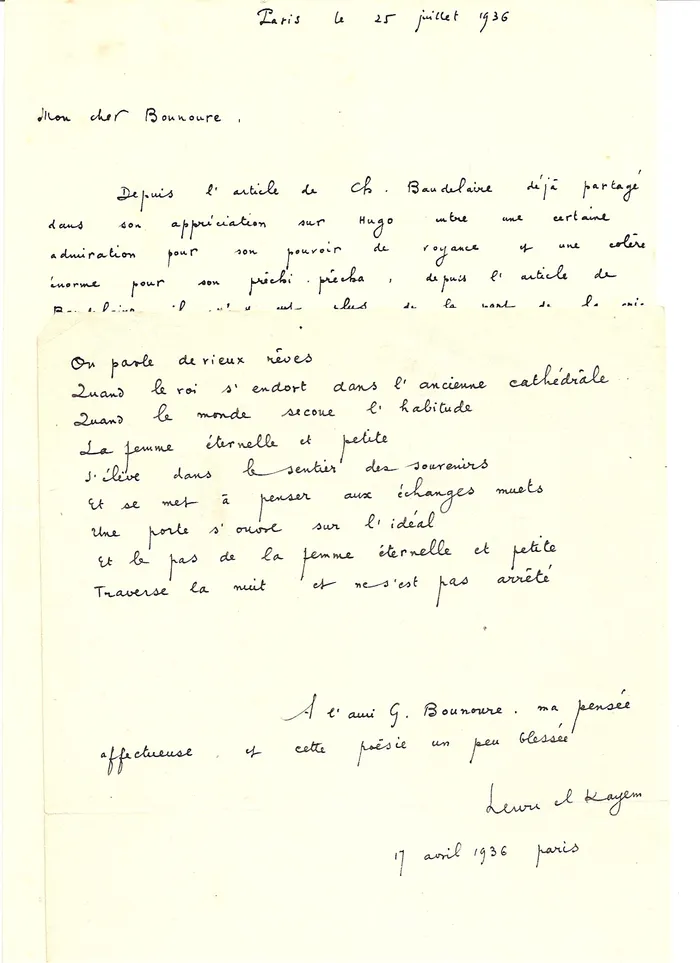 Paris le 25 juillet 1936
Mon cher Bounoure,
Depuis l'article de Ch. Baudelaire déjà partagé
dans son appréciation sur Hugo entre une certaine
admiration pour son pouvoir de voyance et une colère
énorme pour son prêchi-prêcha, depuis l'article de
Baudelaire il n'y a de la part de la
On parle de vieux rêves
Quand le roi s'endort dans l'ancienne cathédrâle
Quand le monde secoue l'habitude
La femme éternelle et petite
S'élève dans le sentier des souvenirs
Et se met à penser aux échanges muets
Une porte s'ouvre sur l'idéal
Et le pas de la femme éternelle et petite
Traverse la nuit et ne s'est pas arrêté
A l'ami G. Bounoure. ma pensée
affectueuse. et cette poësie un peu blessée
el Kayem
17 avril 1936 paris